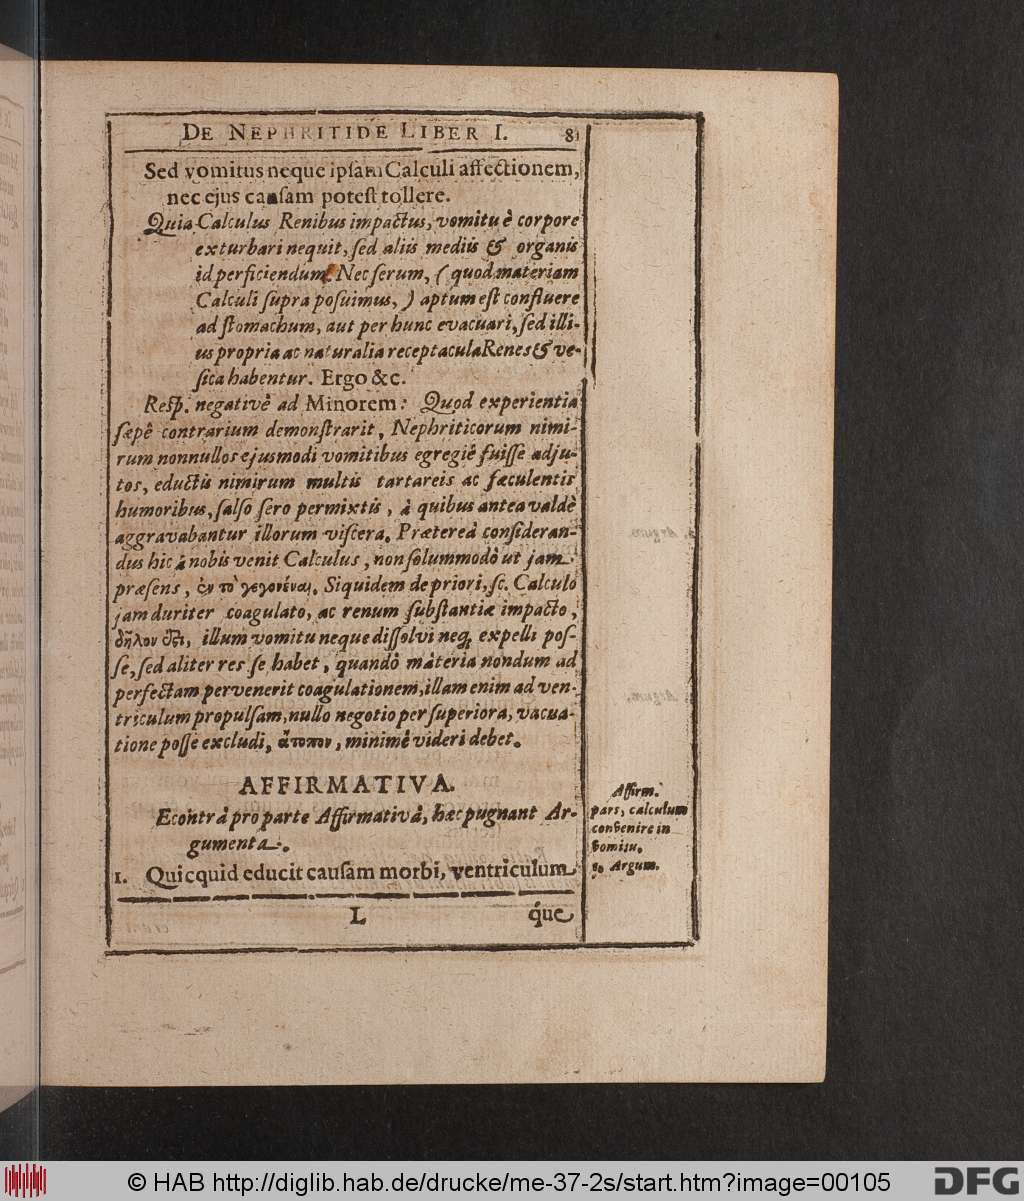 DE NEPHRITIDE LIBER I. 81
Sed vomitus neque ipſam Calculi affectionem,
nec ejus cauſam poteſt tollere.
Quia Calculus Renibus impactus, vomitu è corpore
exturbari nequit, ſed aliis mediis & organis
id perficiendum. Nec ſerum, (quod materiam
Calculi ſupra poſuimus,) aptum eſt confluere
ad ſtomachum, aut per hunc evacuari, ſed illi-
us propria ac naturalia receptacula Renes & ve-
ſica habentur. Ergo &c.
Reſp. negativè ad Minorem: Quod experientia
ſæpè contrarium demonſtrarit, Nephriticorum nimi-
rum nonnullos ejusmodi vomitibus egregiè fuiſſe adju-
tos, eductis nimirum multis tartareis ac fæculentis
humoribus, ſalſo ſero permixtis, à quibus antea valdè
aggravabantur illorum viſcera. Præterea conſideran-
dus hic à nobis venit Calculus, non ſolummodò ut jam
præſens, ἐν τὸ γεγονέναι. Siquidem de priori, ſc. Calculo
jam duriter coagulato, ac renum ſubſtantiæ impacto,
δῆλον ὅτι, illum vomitu neque diſſolvi neq; expelli poſ-
ſe, ſed aliter res ſe habet, quandò materia nondum ad
perfectam pervenerit coagulationem, illam enim ad ven-
triculum propulſam, nullo negotio per ſuperiora, vacua-
tione poſſe excludi, ἄτοπον, minimè videri debet.
AFFIRMATIVA.
Econtrà pro parte Affirmativâ, hæc pugnant Ar-
gumenta.
1. Quicquid educit cauſam morbi, ventriculum
L que
Affirm.
pars, calculum
convenire in
vomitu.
Argum.
© HAB http://diglib.hab.de/drucke/me-37-2s/start.htm?image=00105
DFG